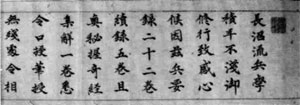 長沼流兵學
積年不淺御
修行致感心
候因茲兵要
錄二十二卷
續錄五卷且
奧秘握奇經
集解一卷悉
令口授筆授
無殘處令相